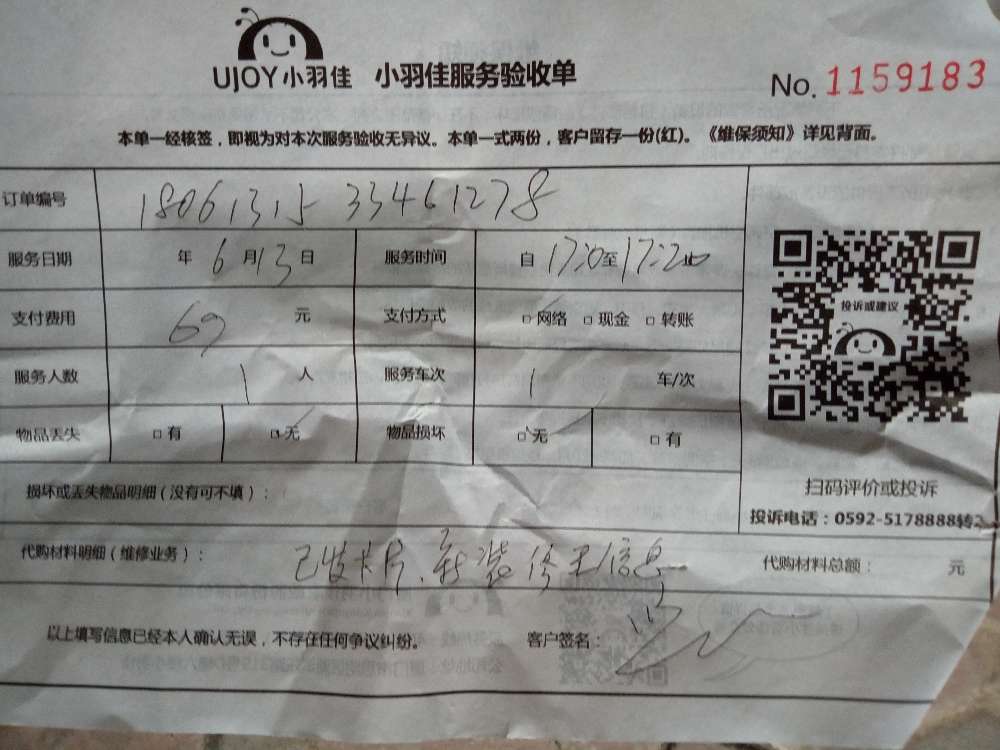 UJOY小羽佳 小羽佳服务验收单 No. 1159183
本单一经核签，即视为对本次服务验收无异议。本单一式两份，客户留存一份(红)。《维保须知》详见背面。
订单编号 1806131533461278
服务日期 年 6 月 13 日 服务时间 自 17:0 至 17:20 止
支付费用 69 元 支付方式 □网络 □现金 □转账
服务人数 1 人 服务车次 1 车/次
物品丢失 □有 □无 物品损坏 □无 □有
投诉或建议
损坏或丢失物品明细（没有可不填）：
扫码评价或投诉
投诉电话：0592-5178888转2
代购材料明细（维修业务）： 已发卡片、新装修无信息 代购材料总额： 元
以上填写信息已经本人确认无误，不存在任何争议纠纷。 客户签名：